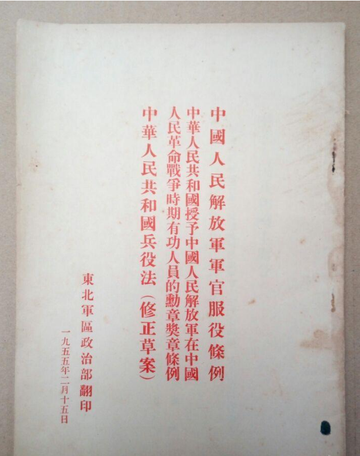 中國人民解放軍軍官服役條例
中華人民共和國授予中國人民解放軍在中國
人民革命戰爭時期有功人員的勳章獎章條例
中華人民共和國兵役法（修正草案）
東北軍區政治部翻印
一九五五年二月十五日